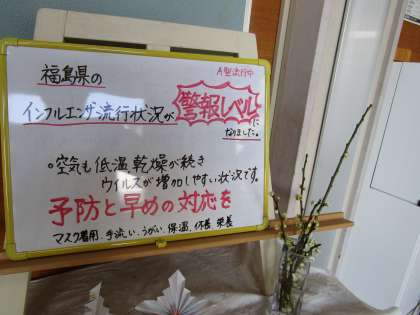 福島県の
A型流行中
インフルエンザ流行状況が警報レベルに
なりました。
。空気も低温乾燥が続き
ウイルスが増加しやすい状況です。
予防と早めの対応を
マスク着用、手洗い、うがい、保温、休養、栄養